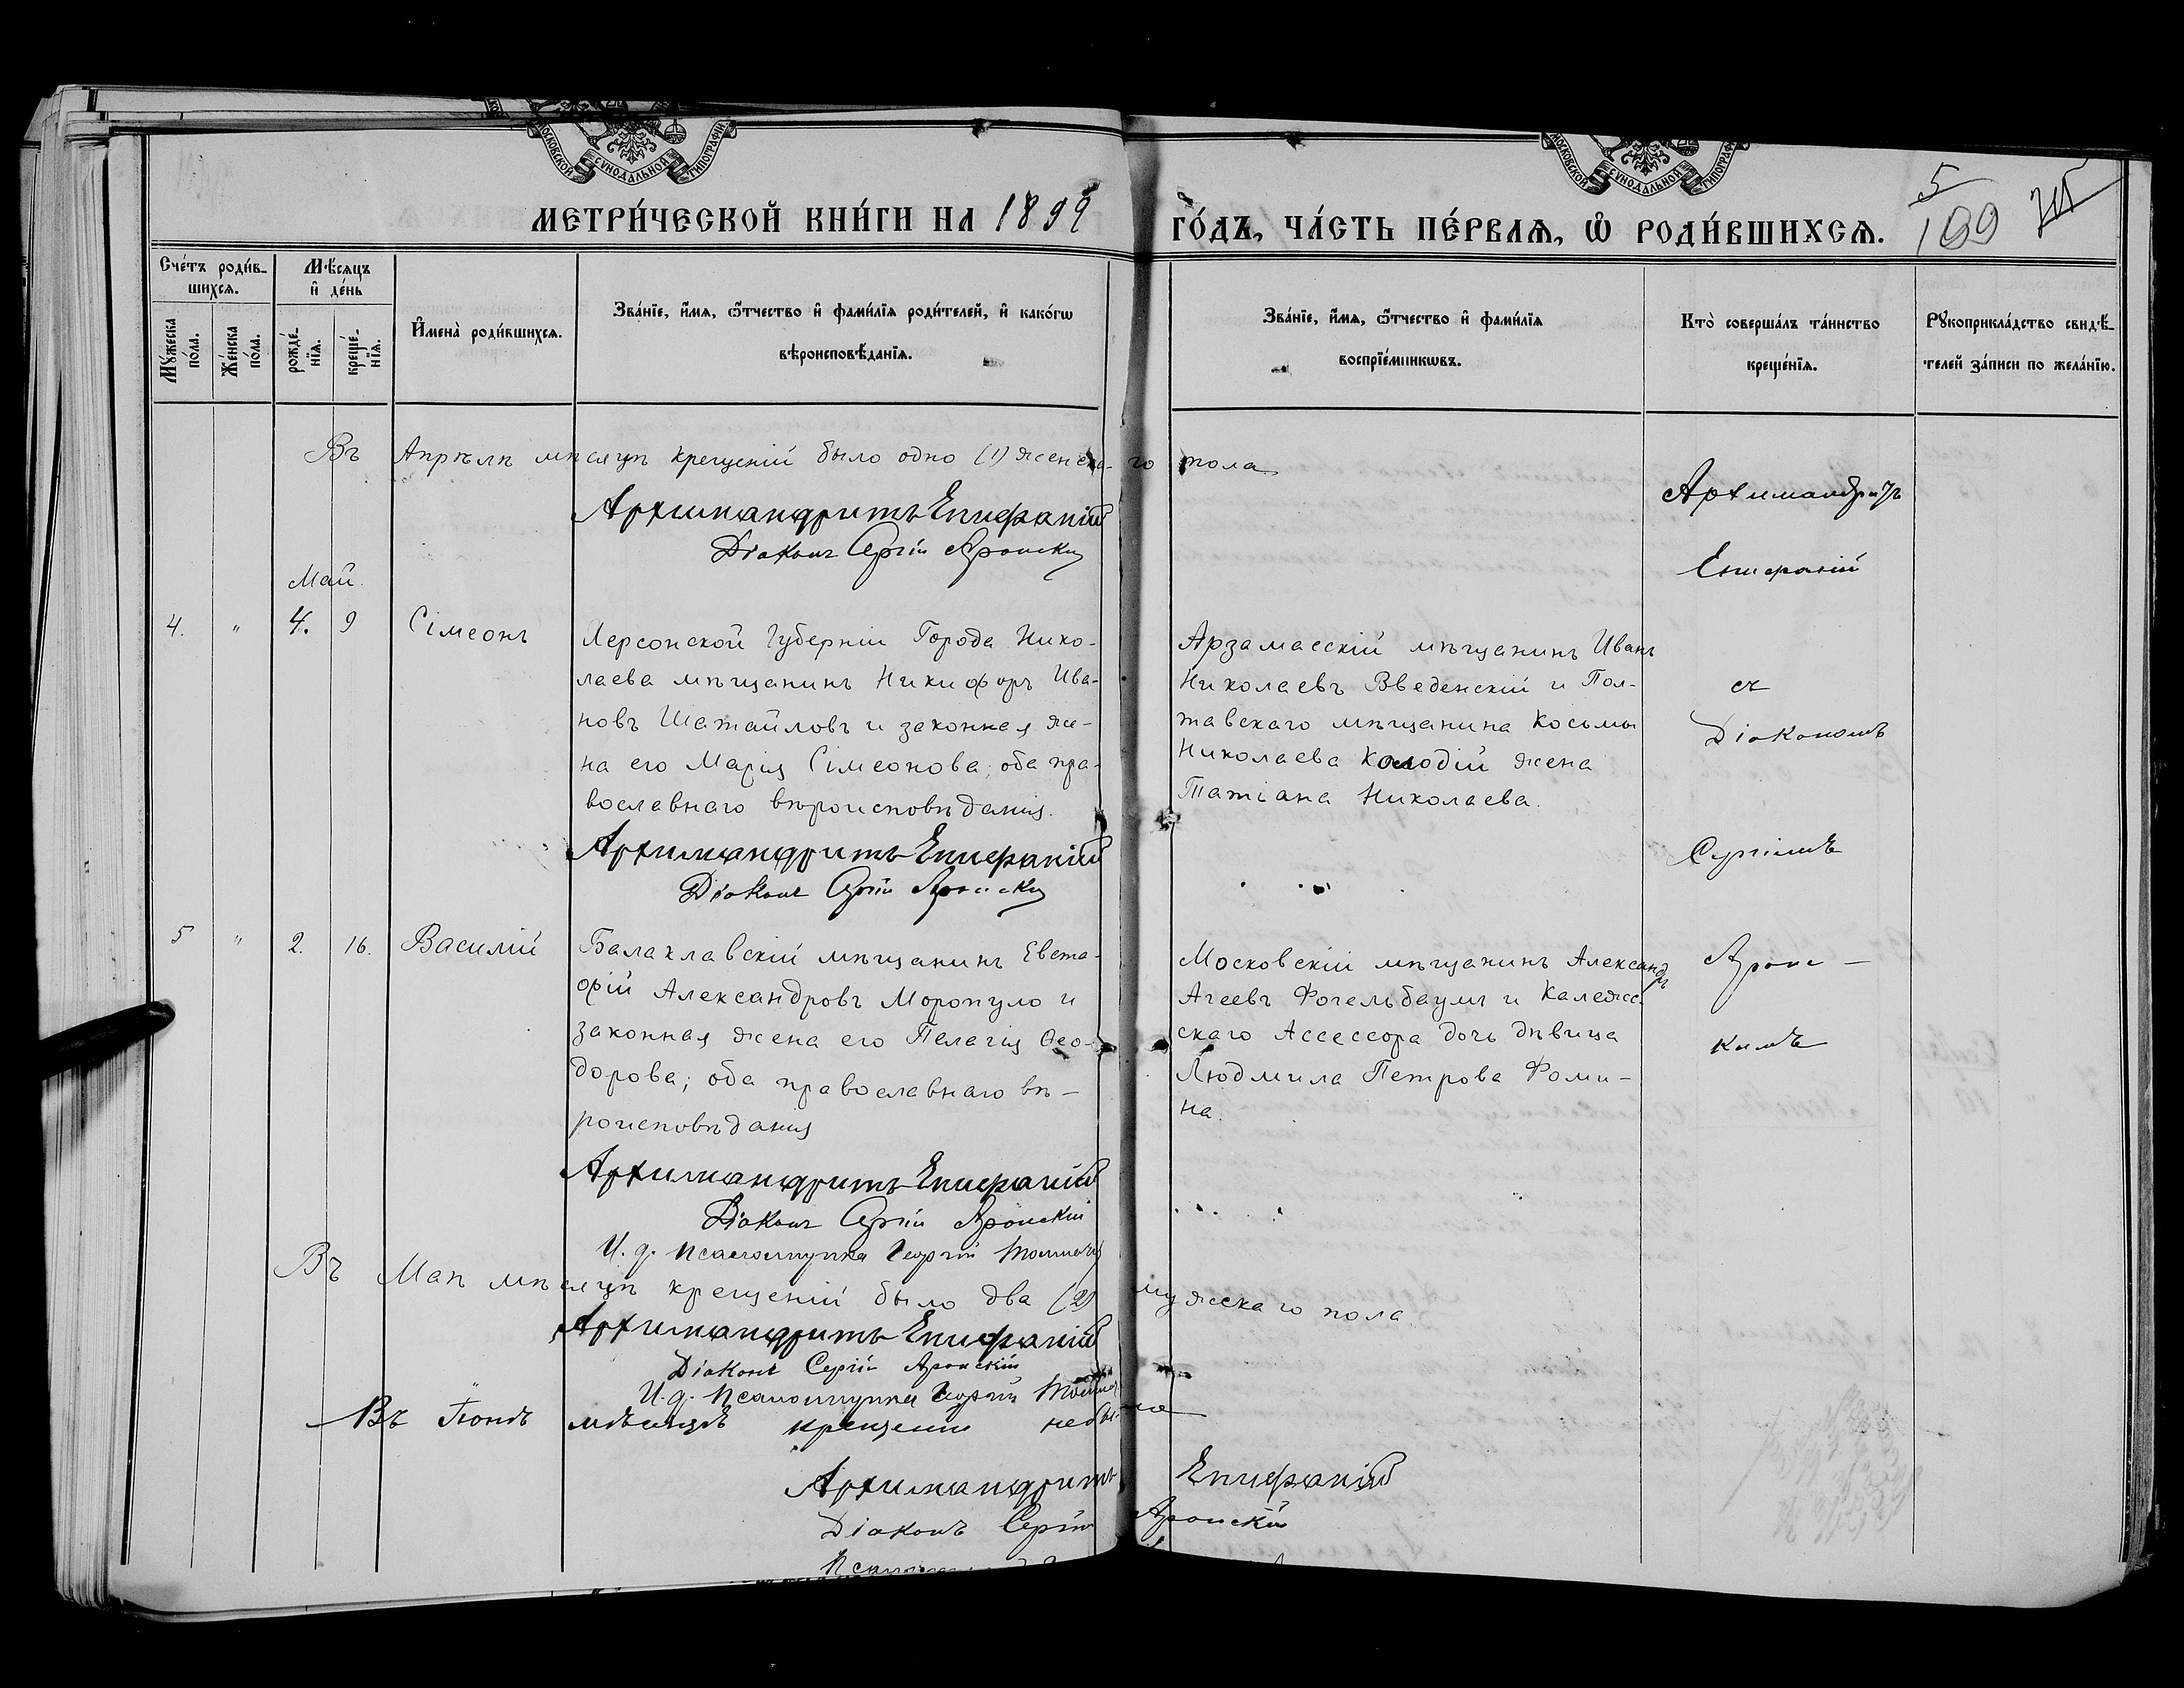 МОСКОВСКОЙ СѴНОДАЛЬНОЙ ТИПОГРАФІИ
МОСКОВСКОЙ СѴНОДАЛЬНОЙ ТИПОГРАФІИ
5
199
МЕТРИ́ЧЕСКОЙ КНИ́ГИ НА 1899 ГО́ДЪ, ЧА́СТЬ ПЕ́РВАѦ, Ѡ РОДИ́ВШИХСѦ.
Сче́тъ роди́в-
шихсѧ.
Мꙋ́жеска
по́ла.
Же́нска
по́ла.
Мѣ́сѧцъ
и҆ де́нь
рожде́-
нїѧ.
креще́-
нїѧ.
И҆мена̀ роди́вшихсѧ.
Зва́нїе, и҆́мѧ, ѻ҆́тчество и҆ фами́лїѧ роди́телей, и҆ како́гѡ
вѣроисповѣ́данїѧ.
Зва́нїе, и҆́мѧ, ѻ҆́тчество и҆ фами́лїѧ
воспрїе́мникѡвъ.
Кто̀ соверша́лъ та́инство
креще́нїѧ.
Рꙋкоприкла́дство свидѣ́-
телей за́писи по жела́нїю.
Въ Апрѣлѣ мѣсяцѣ крещеній было одно (1) женска-го пола
Архимандритъ Епифаній
Діаконъ Сергій Яронскій
Май.
4. " 4. 9 Сімеонъ
Херсонской Губерніи Города Нико-
лаева мѣщанинъ Никифоръ Ива-
новъ Шатайловъ и законная же-
на его Марія Сімеонова; оба пра-
вославнаго вѣроисповѣданія.
Арзамасскій мѣщанинъ Иванъ
Николаевъ Введенскій и Пол-
тавскаго мѣщанина Косьмы
Николаева Колодій жена
Татіана Николаева.
Архимандритъ
Епифаній
съ
Діакономъ
Сергіемъ
Яронс-
кимъ
Архимандритъ Епифаній
Діаконъ Сергій Яронскій
5 " 2. 16. Василій
Балаклавскій мѣщанинъ Евста-
фій Александровъ Моропуло и
законная жена его Пелагія Ѳео-
дорова; оба православнаго вѣ-
роисповѣданія
Московскій мѣщанинъ Александръ
Агеевъ Фогельбаумъ и Каледже-
скаго Ассессора дочь дѣвица
Людмила Петрова Фоми-
на.
Архимандритъ Епифаній
Діаконъ Сергій Яронскій
И. д. Псаломщика Георгій
Въ Маѣ мѣсяцѣ крещеній было два (2) мужскаго пола.
Архимандритъ Епифаній
Діаконъ Сергій Яронскій
И. д. Псаломщика Георгій
Въ Іюнѣ мѣсяцѣ крещеній небыло
Архимандритъ Епифаній
Діаконъ Сергій Яронскій